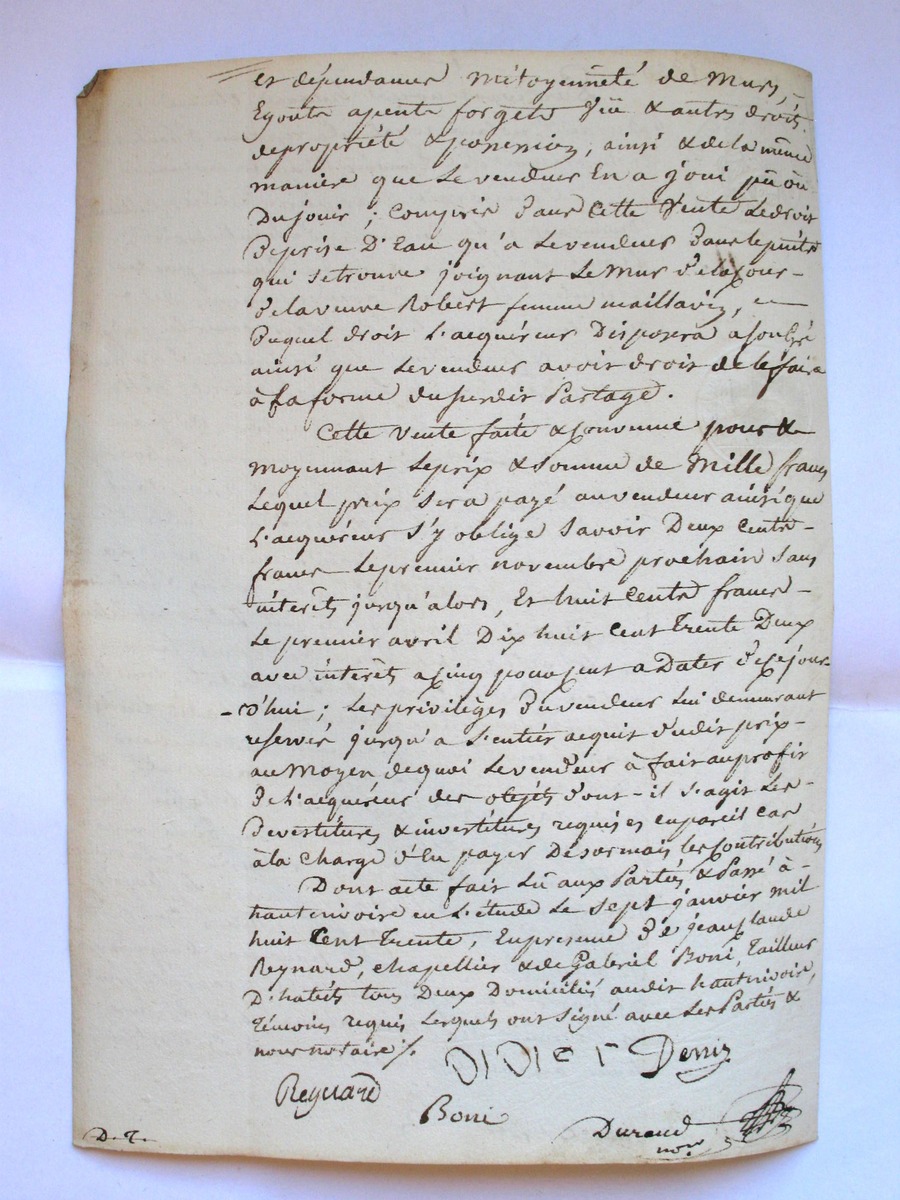 et dépendances mitoyenneté de Murs,
Egouts apents forgets vüe & autres droits
de propriété & possession, ainsi & de la même
manière que le vendeur En a joui pû ou
Du jouir ; Compris Dans Cette Vente Le droit
De prise D'Eau qu'a Le vendeur Dans le puits
qui se trouve joignant Le Mur de la Cour
De la veuve Robert femme maillavin,
Duquel droit L'acquéreur Disposera
ainsi que Le vendeur avoit droit de le faire
à la forme du susdit Partage.
Cette Vente faite & Convenue pour &
moyennant Le prix & somme de Mille francs
Lequel prix sera payé au vendeur ainsi que
L'acquéreur s'y oblige savoir Deux Cents
francs Le premier novembre prochain sans
intérêts jusqu'alors, Et huit Cents francs
Le premier avril Dix huit Cent Trente Deux
avec intérêts a Cinq pour Cent a Dater de Ce jour
-d'hui ; Les privilèges Du vendeur Lui demeurant
reservés jusqu'a l'entier acquit dudit prix
au Moyen de quoi Le vendeur à fait au profit
De L'acquéreur des objets dont-il s'agit Les
Devestitures & investitures requises en pareil cas
à la Charge d'En payer Désormais les Contributions
Dont acte fait Lû aux Parties & Passé à
hauterivoire en L'étude Le sept janvier mil
huit Cent Trente, En presence De jean Claude
Reynard, chapellier & de Gabriel Boni, Tailleur
D'habits tous Deux Domiciliés audit hauterivoire,
témoins requis Lesquels ont signé avec Les Parties &
nous notaire /.
DIDIER Denis
Reynard
Boni
Durand
nore
D. T.